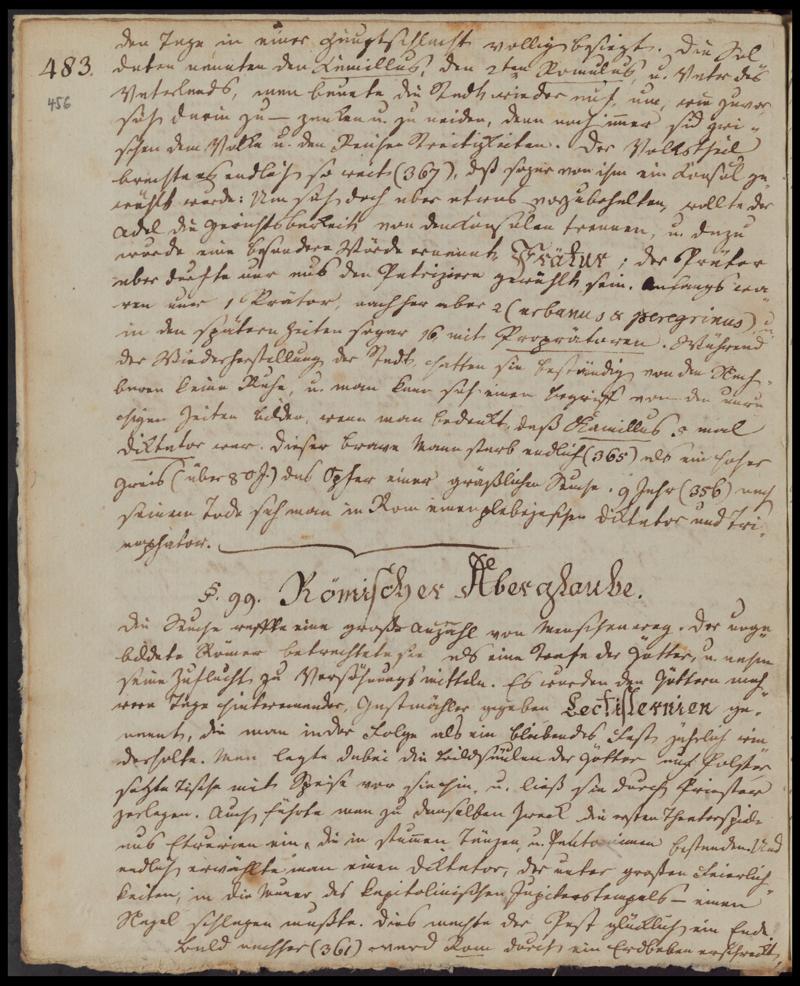 den Tage in einer Hauptschlacht völlig besiegt. Die Sol
483. daten nannten den Kamillus, den 2ten Romulus, u. Vater des
456 Vaterlands, man baute die Stadt wieder auf, um, wie zuvor
sich darin zu — zanken u. zu neiden, denn noch immer sind zwi-
schen dem Volke u. den Reichen Streitigkeiten. Der Volkstheil
brachte es endlich so weit (367), daß sogar von ihm ein Konsul ge
wählt wurde: Um sich doch aber etwas vorzubehalten, wollte der
Adel die Gerichtsbarkeit von den Konsulen trennen, u. dazu
wurde eine besondere Würde ernannt Prätur; der Prätor
aber durfte nur aus den Patriziern gewählt sein. Anfangs wa
ren nur 1 Prätor, nachher aber 2 (urbanus & peregrinus), u
in den spätern Zeiten sogar 16 mit Proprätoren. Während
der Wiederherstellung der Stadt, hatten sie beständig von den Nach-
baren keine Ruhe, u. man kann sich einen Begriff von den unru
higen Zeiten bilden, wenn man bedenkt, daß Kamillus 5 mal
Diktator war. Dieser brave Mann starb endlich (365) als ein hoher
Greis (über 80 J.) das Opfer einer gräßlichen Seuche. 9 Jahr (356) nach
seinem Tode sah man in Rom einen plebejischen Diktator und Tri-
umphator.
§. 99. Römischer Aberglaube.
Die Seuche raffte eine große Anzahl von Menschen weg. Der unge
bildete Römer betrachtete sie als eine Strafe der Götter, u. nahm
seine Zuflucht zu Versöhnungsmitteln. Es wurden den Göttern meh
rere Tage hintereinander, Gastmähler gegeben Lectisternien ge-
nannt, die man in der Folge als ein bleibendes Fest jährlich wie
derholte. Man legte dabei die Bildsäulen der Götter auf Polster
setzte Tische mit Speise vor sie hin, u. ließ sie durch Priester
zerlegen. Auch führte man zu demselben Zweck die ersten Theaterspiele
aus Etrurien ein, die in stummen Tänzen u. Pantomimen bestanden. Und
endlich erwählte man einen Diktator, der unter großen Feierlich-
keiten, in die Mauer des kapitolinischen Jupiterstempels — einen
Nagel schlagen mußte. Dies machte der Pest glücklich ein Ende
Bald nachher (361) ward Rom durch ein Erdbeben erschreckt,